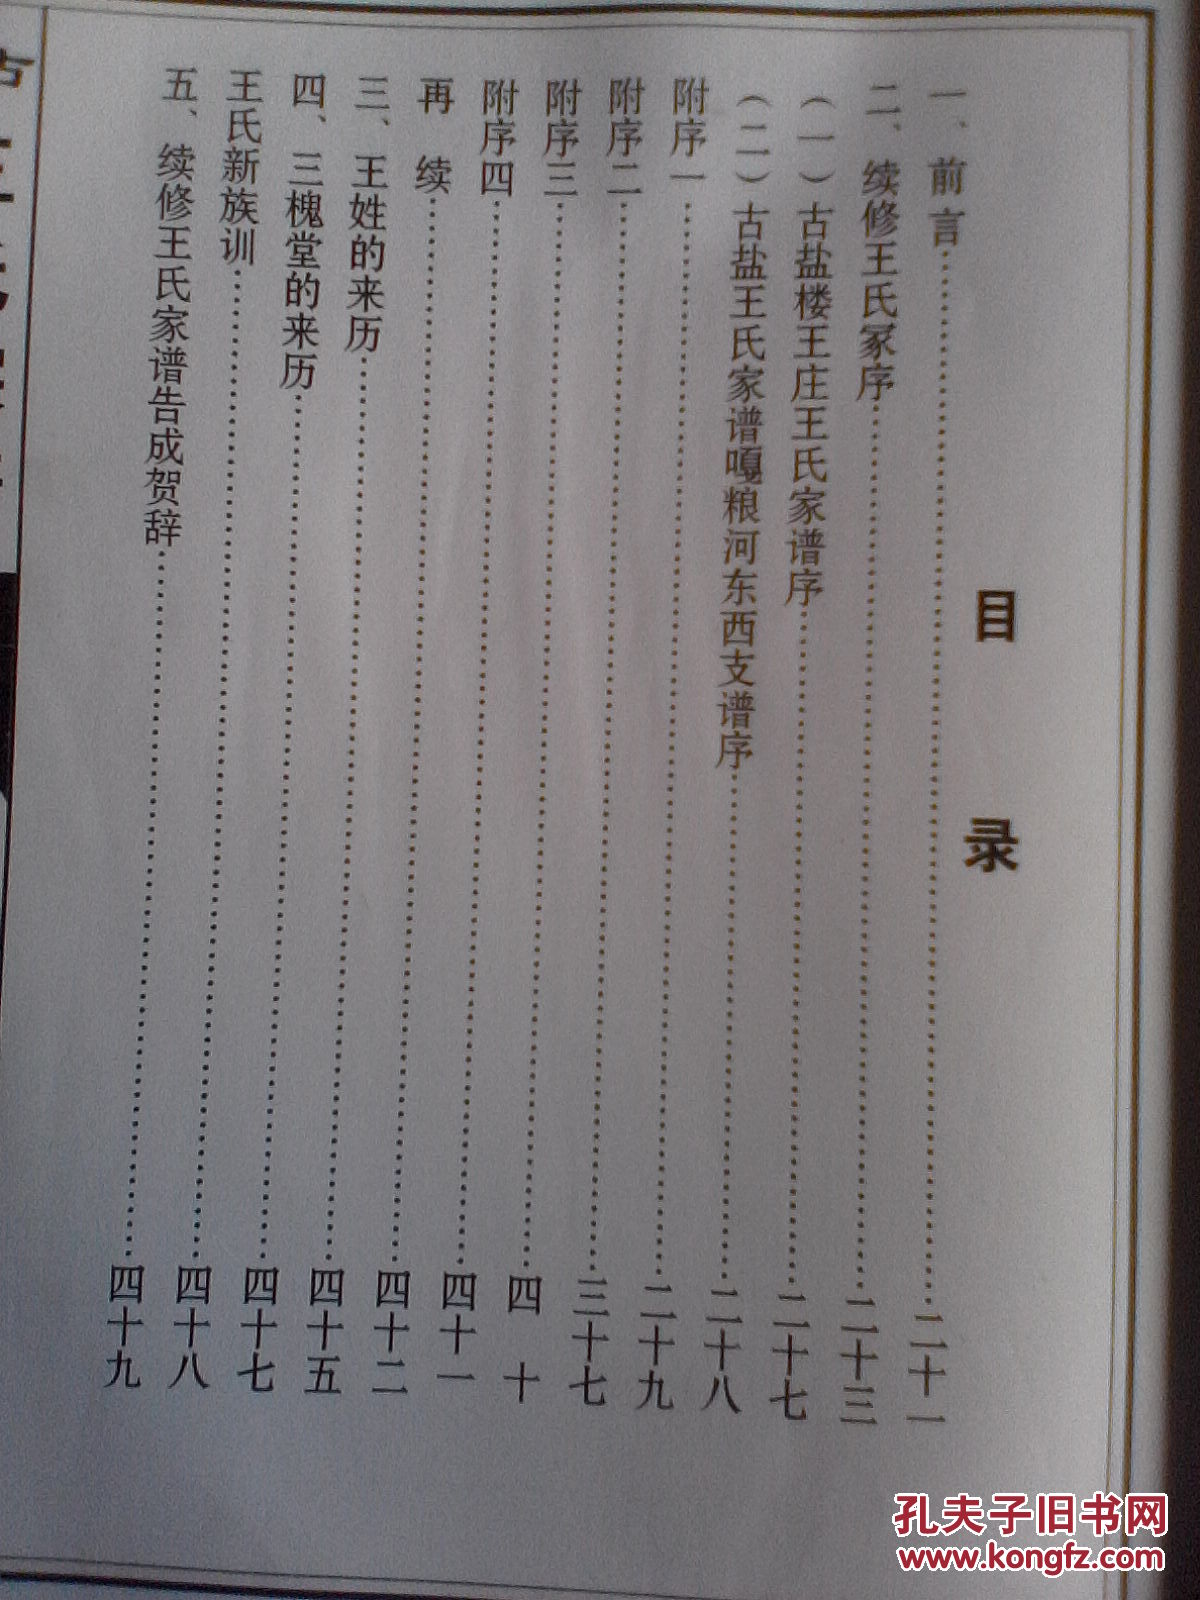 目录
一、前言……二十一
二、续修王氏冢序……二十三
（一）古盐楼王庄王氏家谱序……二十七
（二）古盐王氏家谱嘎粮河东西支谱序……二十八
附序一……二十九
附序二……三十七
附序三……四十
附序四……四十一
再续……四十二
三、王姓的来历……四十五
四、三槐堂的来历……四十七
王氏新族训……四十八
五、续修王氏家谱告成贺辞……四十九
孔夫子旧书网
www.kongfz.com